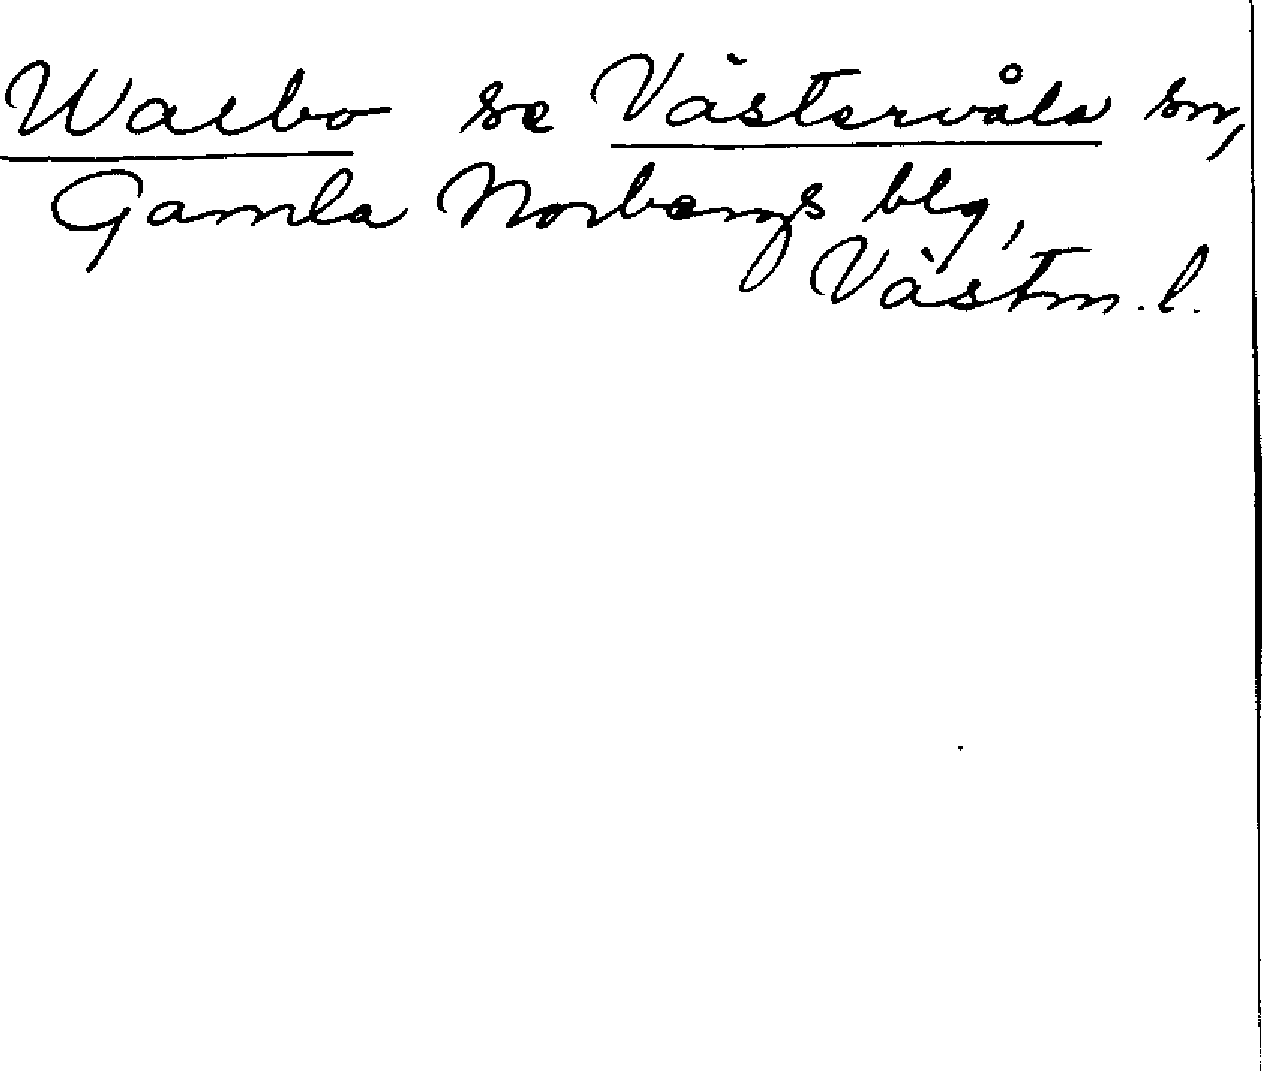 Waebo se Västervåla sn,
Gamla Norbergs blg,
Västm. l.